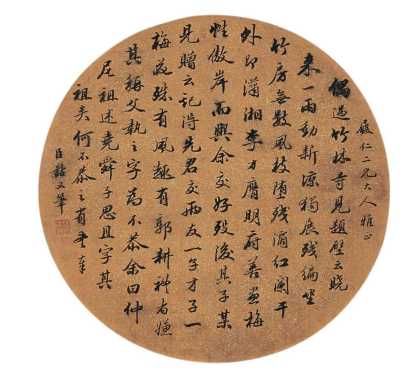 仁二兄大人雅正
偶過竹林寺見題壁云曉
来一雨動新涼獨展殘編坐
竹房無數風枝墮殘滴紅闌干
外即瀟湘李方膺明府善畫梅
性傲岸而與余交好歿後其子某
見贈云記得先君交兩友一子才子一
梅花殊有風趣有郭耕禮者嫌
其稱父執之字為不恭余曰仲
尼祖述堯舜子思且字其
祖矣何不恭之有